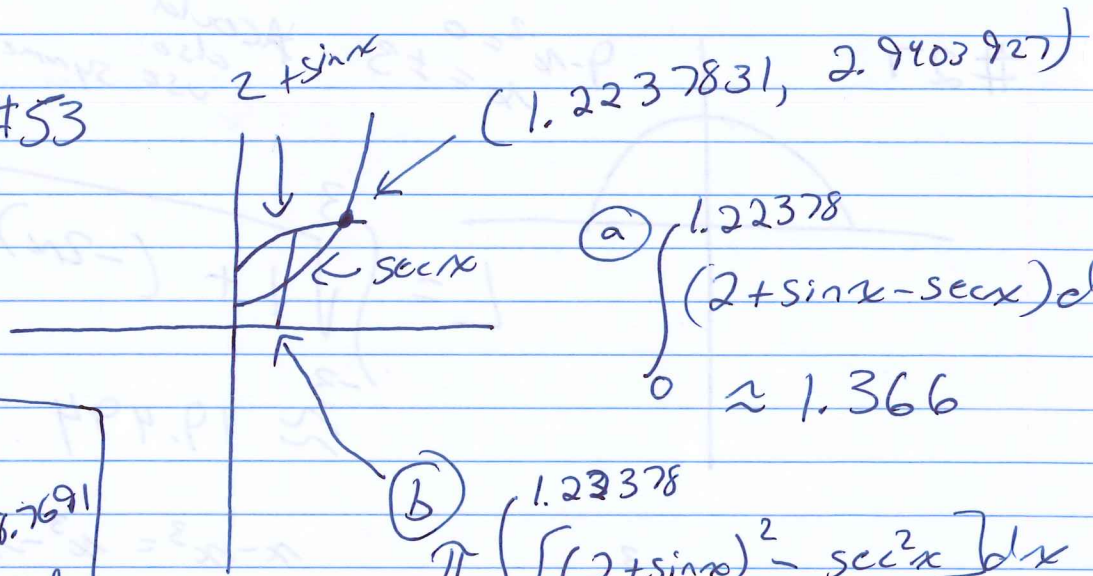 #53
2 + sin x
(1.2237831, 2.9403927)
sec x
(a) ∫ 0 1.22378 (2 + sin x - sec x) d
≈ 1.366
.7691
(b) π ∫ 1.22378 [(2 + sin x)² - sec² x] dx